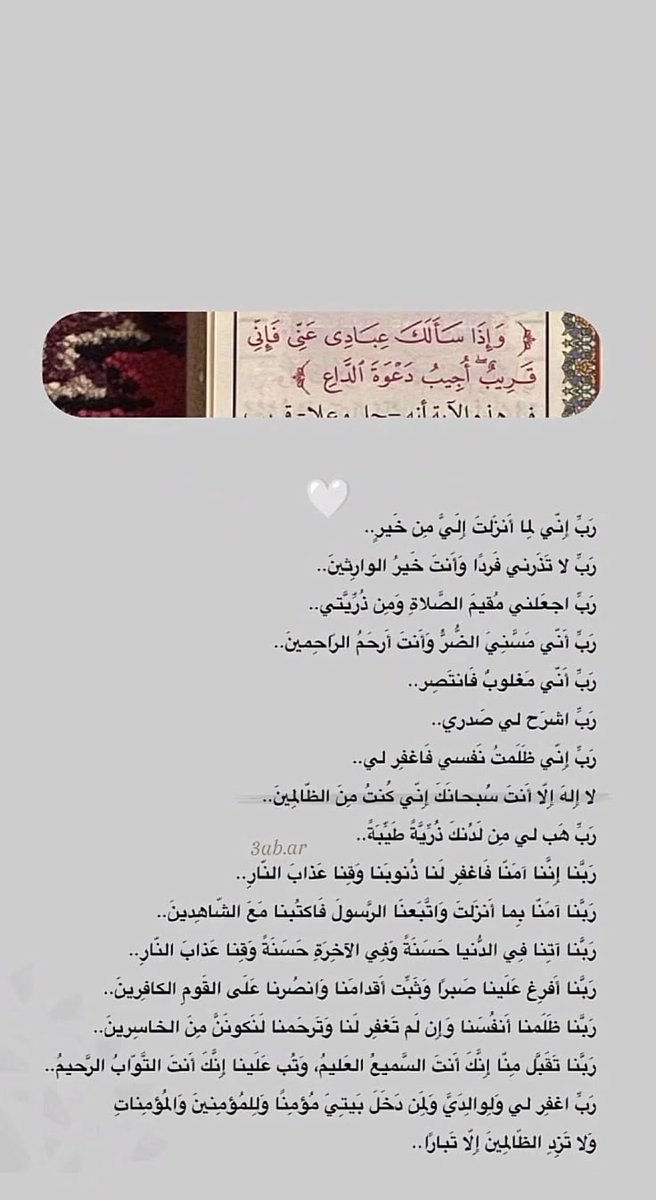 ﴿ وَإِذَا سَأَلَكَ عِبَادِى عَنِّى فَإِنِّى
قَرِيبٌ ۖ أُجِيبُ دَعْوَةَ ٱلدَّاعِ ﴾
في هذه الآية أنه -جل وعلا- قريب
رَبِّ إِنّي لِما أَنزَلتَ إِلَيَّ مِن خَيرٍ..
رَبِّ لا تَذَرني فَردًا وَأَنتَ خَيرُ الوارِثينَ..
رَبِّ اجعَلني مُقيمَ الصَّلاةِ وَمِن ذُرِّيَّتي..
رَبِّ أَنّي مَسَّنِيَ الضُّرُّ وَأَنتَ أَرحَمُ الرَاحِمينَ..
رَبِّ أَنّي مَغلوبٌ فَانتَصِر..
رَبِّ اشرَح لي صَدري..
رَبِّ إِنّي ظَلَمتُ نَفسي فَاغفِر لي..
لا إِلهَ إِلّا أَنتَ سُبحانَكَ إِنّي كُنتُ مِنَ الظّالِمِينَ..
رَبِّ هَب لي مِن لَدُنكَ ذُرِّيَّةً طَيِّبَةً..
3ab.ar
رَبَّنا إِنَّنا آمَنّا فَاغفِر لَنا ذُنوبَنا وَقِنا عَذابَ النّارِ..
رَبَّنا آمَنّا بِما أَنزَلتَ وَاتَّبَعنَا الرَّسولَ فَاكتُبنا مَعَ الشّاهِدينَ..
رَبَّنا آتِنا فِي الدُّنيا حَسَنَةً وَفِي الآخِرَةِ حَسَنَةً وَقِنا عَذابَ النّارِ..
رَبَّنا أَفرِغ عَلَينا صَبرًا وَثَبِّت أَقدامَنا وَانصُرنا عَلَى القَومِ الكافِرينَ..
رَبَّنا ظَلَمنا أَنفُسَنا وَإِن لَم تَغفِر لَنا وَتَرحَمنا لَنَكونَنَّ مِنَ الخاسِرينَ..
رَبَّنا تَقَبَّل مِنّا إِنَّكَ أَنتَ السَّميعُ العَليمُ، وَتُب عَلَينا إِنَّكَ أَنتَ التَّوّابُ الرَّحيمُ..
رَبِّ اغفِر لي وَلِوالِدَيَّ وَلِمَن دَخَلَ بَيتِيَ مُؤمِنًا وَلِلمُؤمِنينَ وَالمُؤمِناتِ
وَلا تَزِدِ الظّالِمينَ إِلّا تَبارًا..